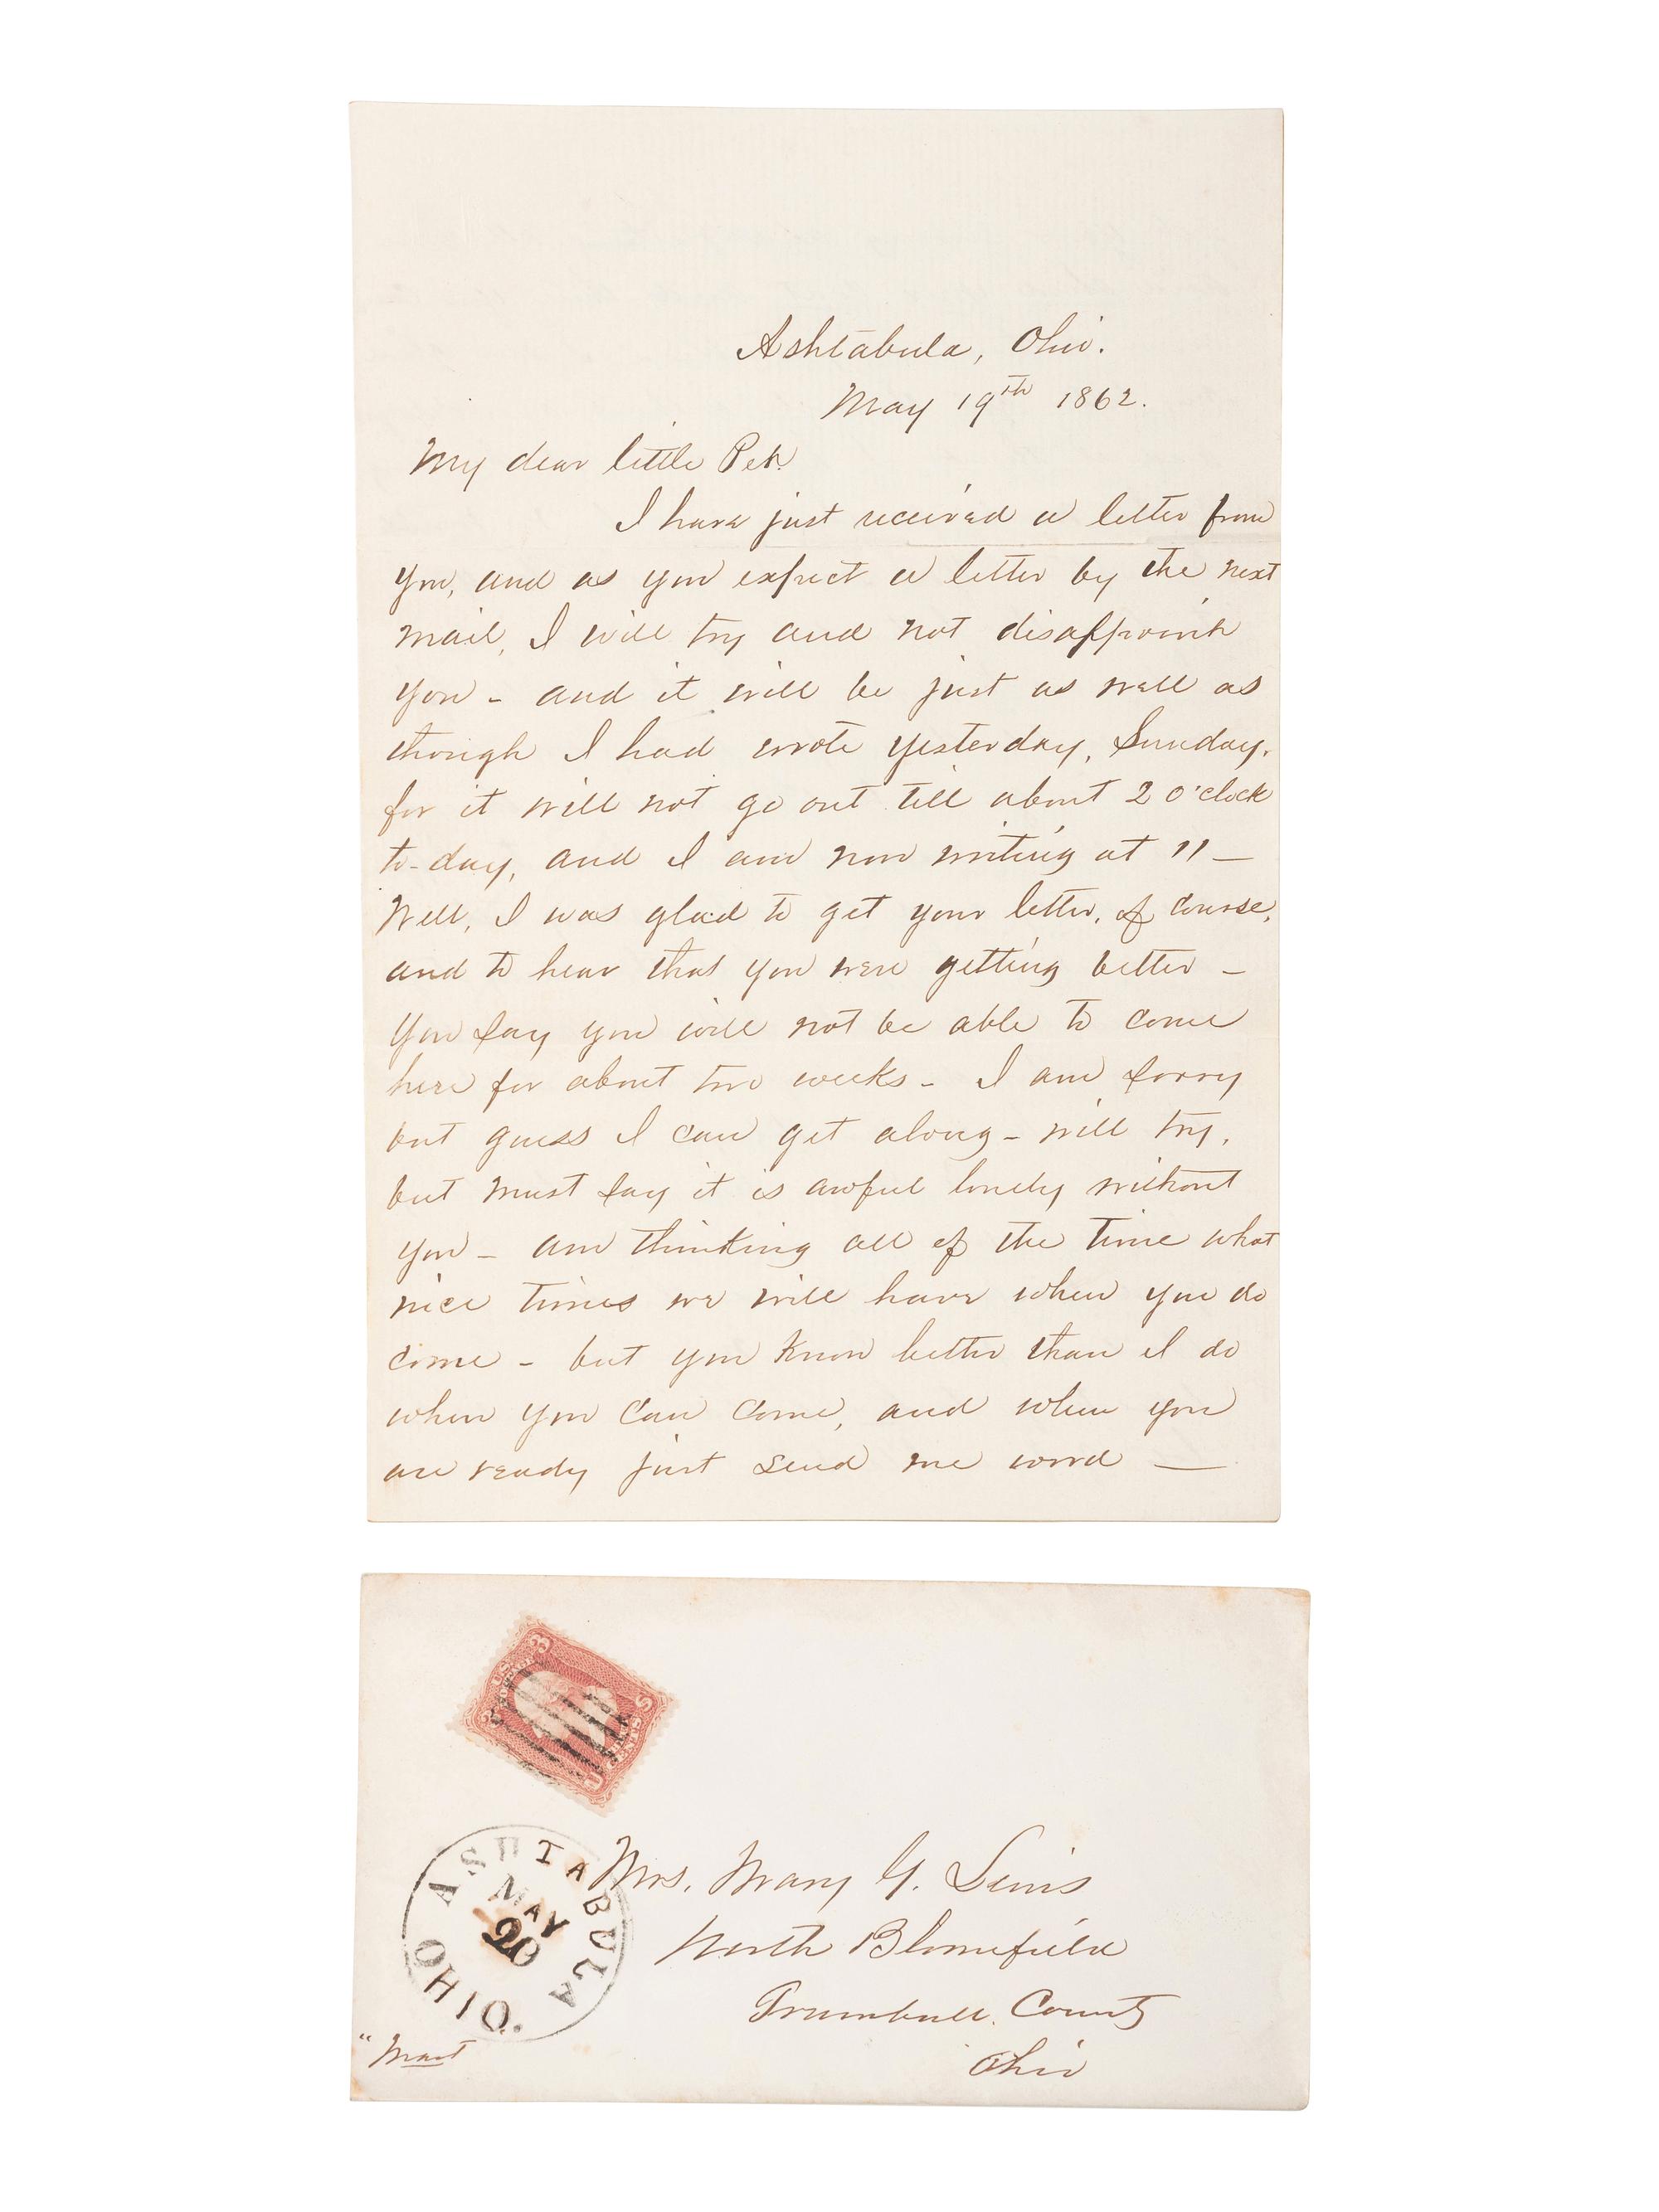 Ashtabula, Ohio.
May 19th 1862.
My dear little Pet.
I have just received a letter from
you, and as you expect a letter by the next
mail, I will try and not disappoint
you - and it will be just as well as
though I had wrote yesterday, Sunday,
for it will not go out till about 2 o'clock
to-day, and I am now writing at 11 —
Well, I was glad to get your letter, of course,
and to hear that you were getting better -
You say you will not be able to come
here for about two weeks - I am sorry
but guess I can get along - will try,
but must say it is awful lonely without
you - am thinking all of the time what
nice times we will have when you do
come - but you know better than I do
when you can come, and when you
are ready just send me word —
U.S. POSTAGE
3 3
THREE CENTS
U S
ASHTABULA
MAY
20
OHIO.
Mrs. Mary G.
North Bloomfield
Trumbull County
Ohio